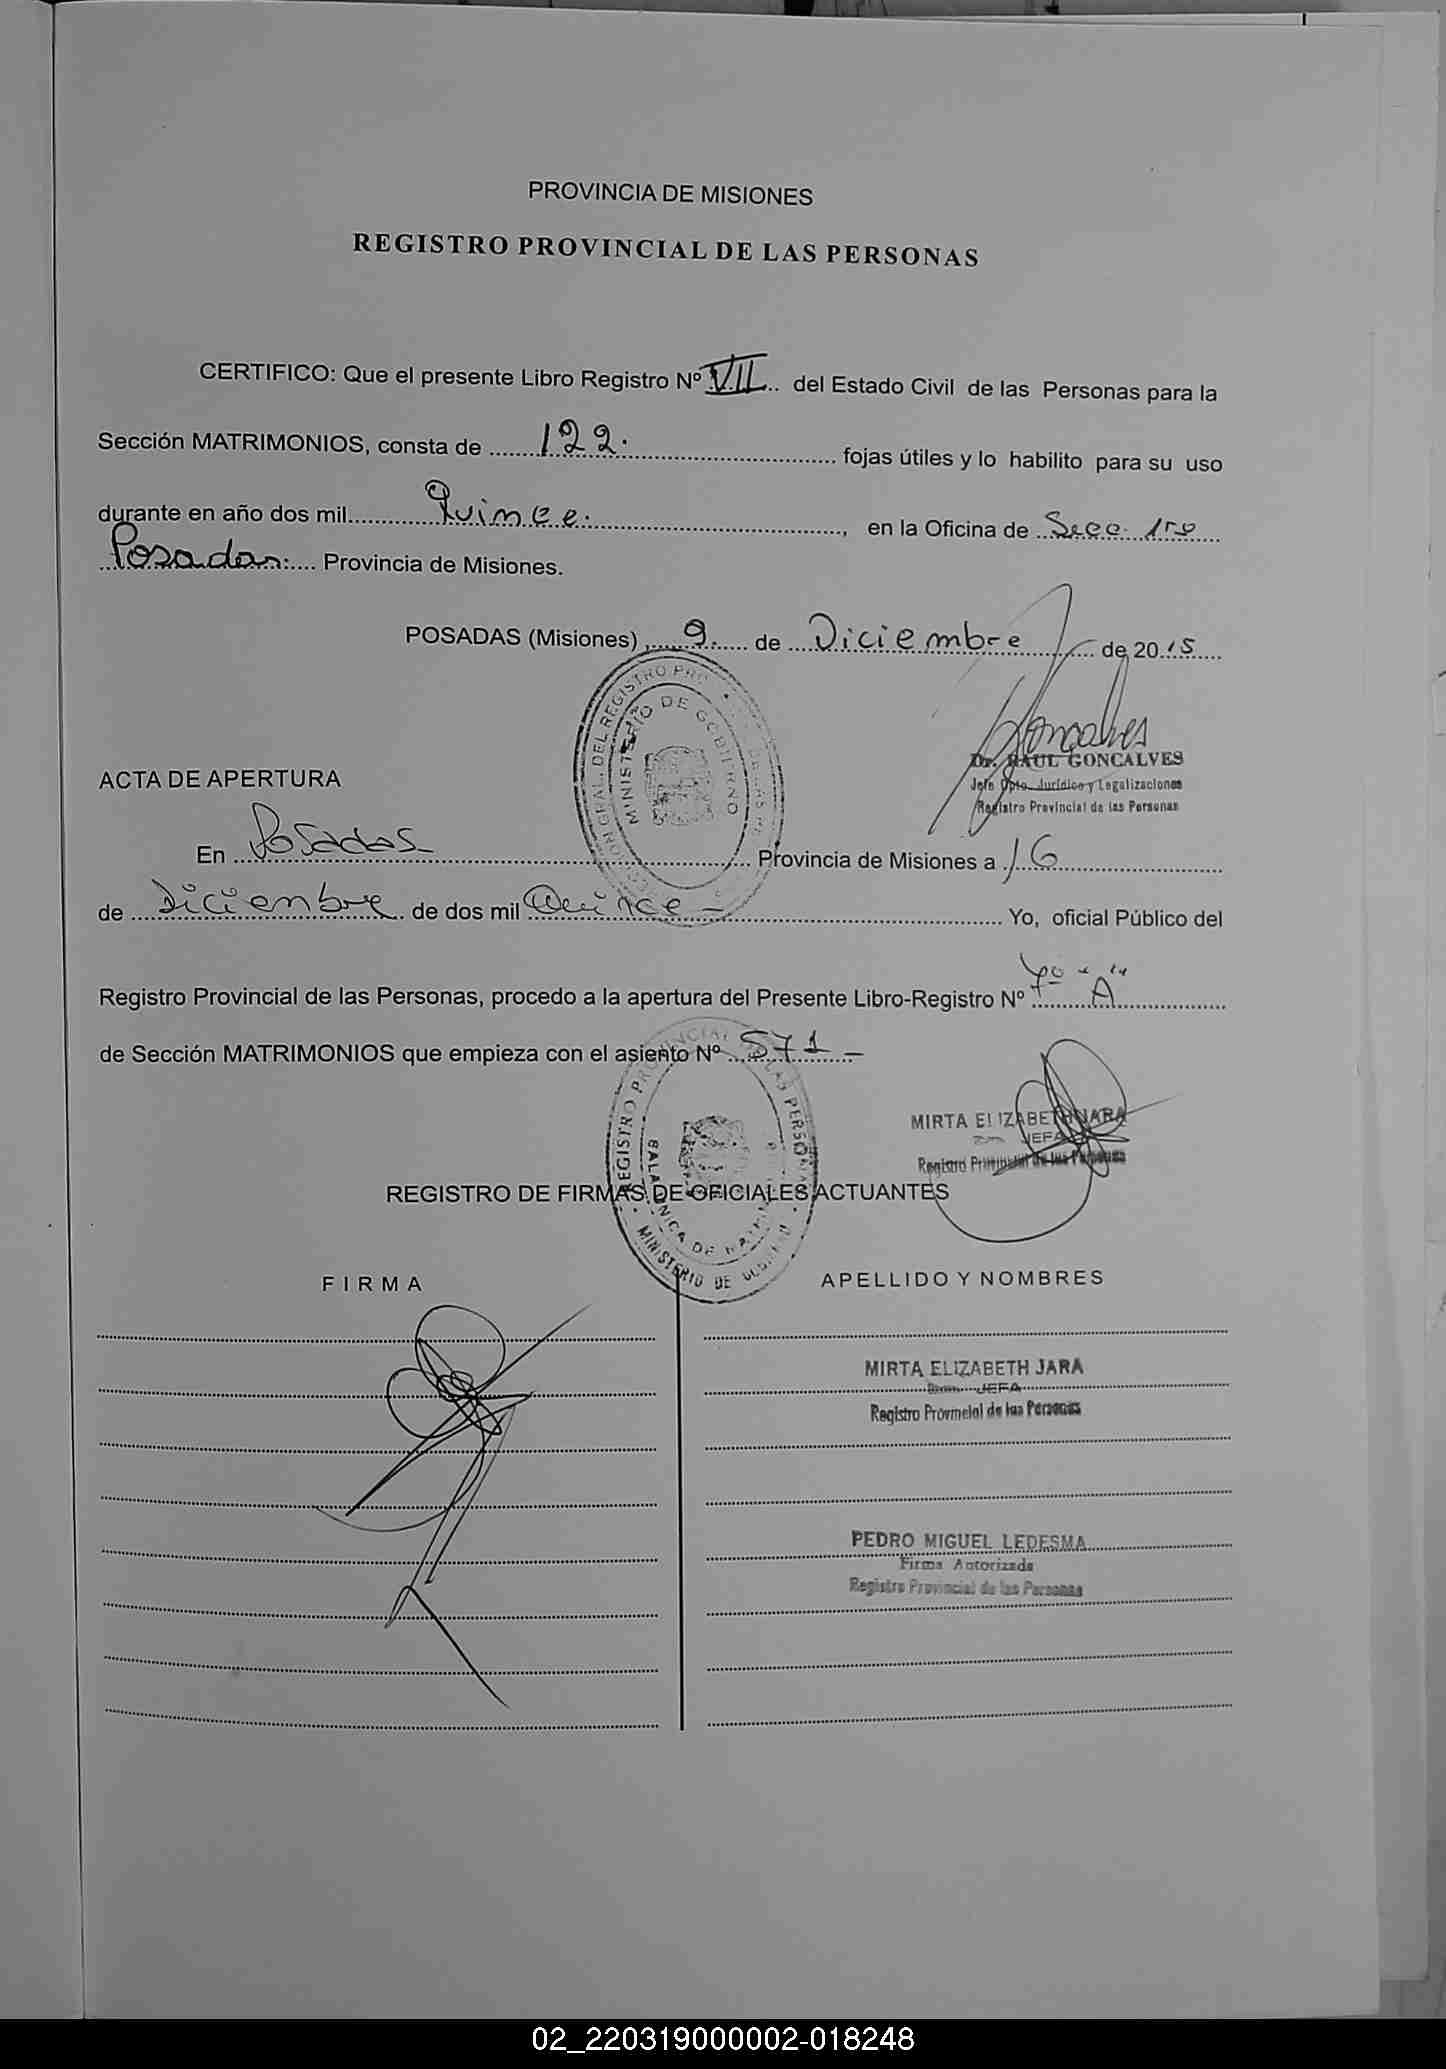 PROVINCIA DE MISIONES
REGISTRO PROVINCIAL DE LAS PERSONAS
CERTIFICO: Que el presente Libro Registro Nº VII del Estado Civil de las Personas para la
Sección MATRIMONIOS, consta de 122. fojas útiles y lo habilito para su uso
durante en año dos mil Quince. , en la Oficina de Secc. 1ra
Posadas Provincia de Misiones.
POSADAS (Misiones) , 9 de Diciembre de 2015
Goncalves
Dr. RAUL GONCALVES
Jefe Dpto. Jurídico y Legalizaciones
Registro Provincial de las Personas
MINISTERIO DE GOBIERNO
ACTA DE APERTURA
En Posadas Provincia de Misiones a 16
de Diciembre de dos mil Quince - Yo, oficial Público del
Registro Provincial de las Personas, procedo a la apertura del Presente Libro-Registro Nº 7º "A"
de Sección MATRIMONIOS que empieza con el asiento Nº 571 -
MIRTA ELIZABETH JARA
JEFA
Registro Provincial de las Personas
REGISTRO PROVINCIAL DE LAS PERSONAS
MINISTERIO DE GOBIERNO
REGISTRO DE FIRMAS DE OFICIALES ACTUANTES
FIRMA APELLIDO Y NOMBRES
MIRTA ELIZABETH JARA
JEFA
Registro Provincial de las Personas
PEDRO MIGUEL LEDESMA
Firma Autorizada
Registro Provincial de las Personas
02_220319000002-018248